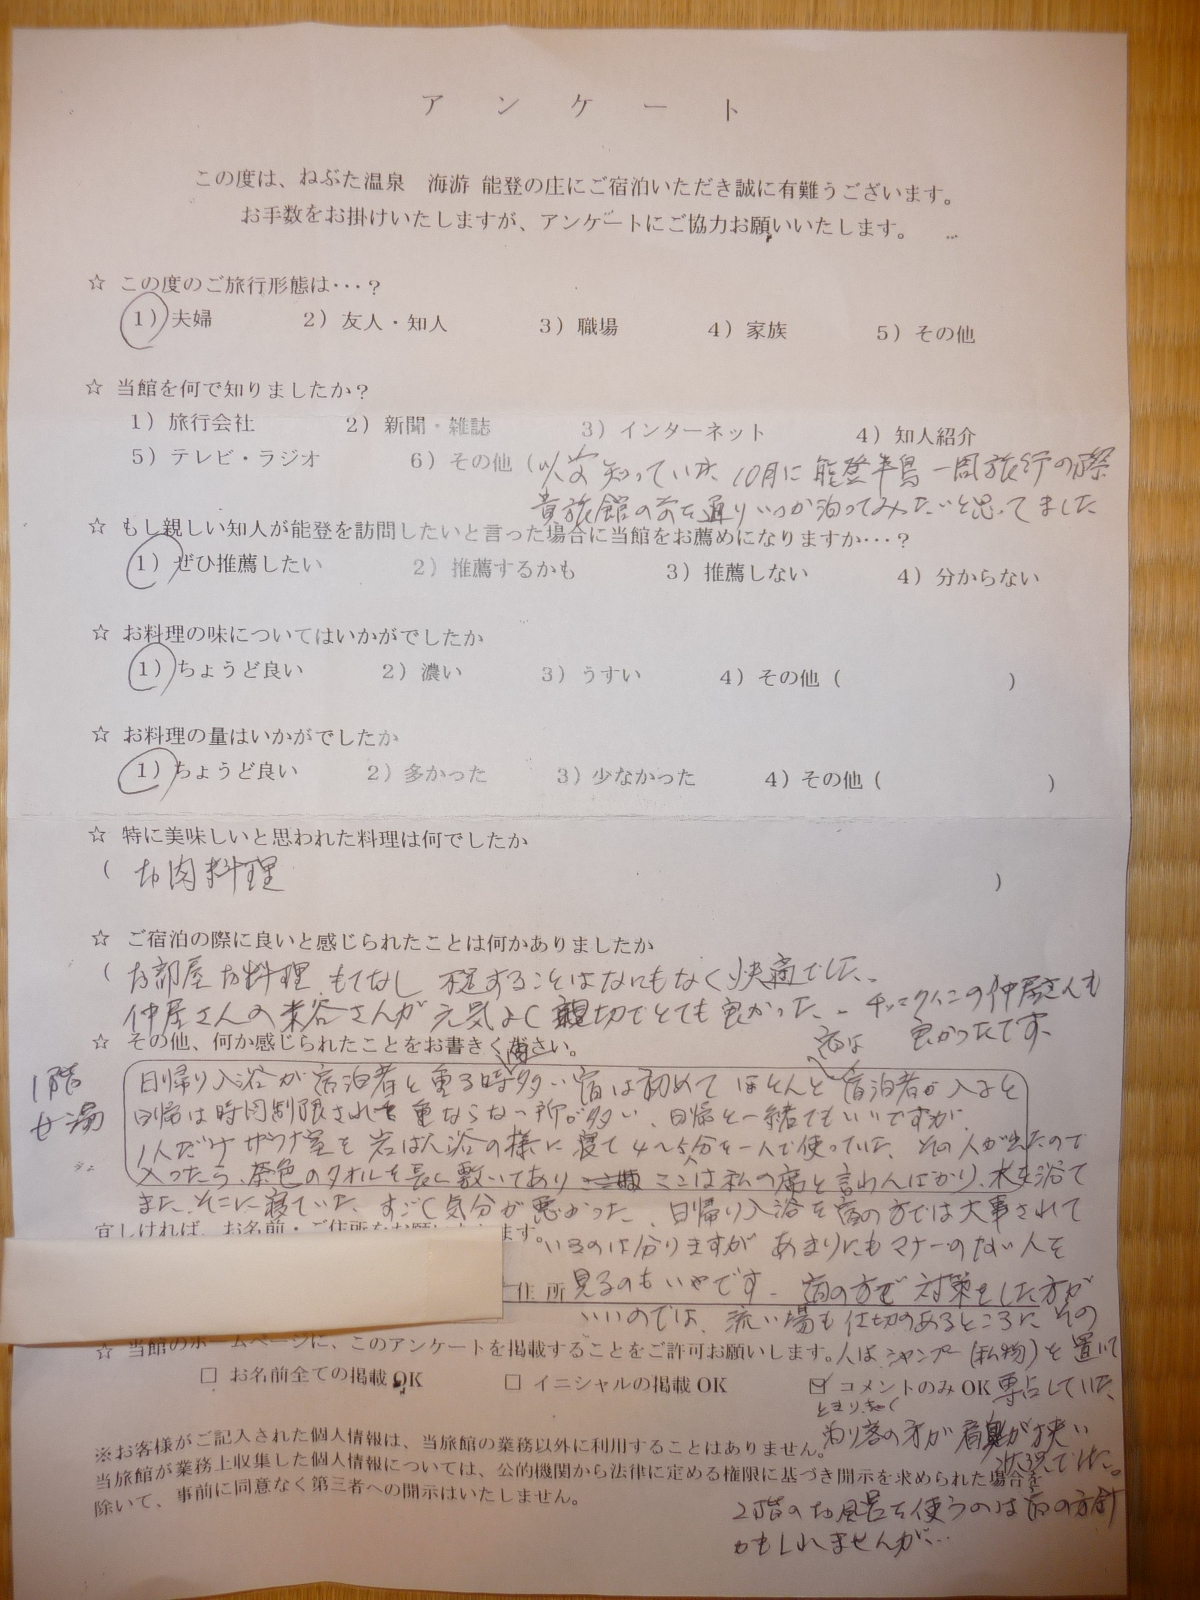 アンケート
この度は、ねぶた温泉 海游 能登の庄にご宿泊いただき誠に有難うございます。
お手数をお掛けいたしますが、アンケートにご協力お願いいたします。
☆ この度のご旅行形態は・・・？
1）夫婦 2）友人・知人 3）職場 4）家族 5）その他
☆ 当館を何で知りましたか？
1）旅行会社 2）新聞・雑誌 3）インターネット 4）知人紹介
5）テレビ・ラジオ 6）その他（以前知っていた、10月に能登半島一周旅行の際
貴旅館の前を通りいつか泊ってみたいと思ってました
☆ もし親しい知人が能登を訪問したいと言った場合に当館をお薦めになりますか・・・？
1）ぜひ推薦したい 2）推薦するかも 3）推薦しない 4）分からない
☆ お料理の味についてはいかがでしたか
1）ちょうど良い 2）濃い 3）うすい 4）その他（ ）
☆ お料理の量はいかがでしたか
1）ちょうど良い 2）多かった 3）少なかった 4）その他（ ）
☆ 特に美味しいと思われた料理は何でしたか
（ お肉料理 ）
☆ ご宿泊の際に良いと感じられたことは何かありましたか
（ お部屋 お料理 もてなし することはなにもなく快適でした。
仲居さんの米谷さんが元気よく親切でとても良かった。チェックインの仲居さんも
良かったです、
☆ その他、何か感じられたことをお書きください。
1階
女湯
日帰り入浴が宿泊者と重る時多い 宿は初めて ほとんど宿泊者が入ると
日帰は時間制限されて重ならない所が多い、日帰と一緒でもいいですが
1人だけサウナ室を岩ば人浴の様に寝て4〜5分を一人で使っていた、その人が出たので
入ったら、茶色のタオルを長く敷いてあり ここは私の席と言わんばかり、水風浴て
また、そこに寝ていた、すごく気分が悪かった、日帰り入浴を宿の方では大事されて
宜しければ、お名前・ご住所をお願いします。
いるのは分りますが あまりにもマナーのない人を
住所
見るのもいやです。宿の方で対策をした方が
いいのでは、流い場も仕切のあるところに その
☆ 当館のホームページに、このアンケートを掲載することをご許可お願いします。
人はシャンプー（私物）を置いて
□ お名前全ての掲載OK □ イニシャルの掲載OK ☑ コメントのみOK
専占していた、
とまりきゃく
泊り客の方が肩身が狭い
状況でした。
※お客様がご記入された個人情報は、当旅館の業務以外に利用することはありません。
当旅館が業務上収集した個人情報については、公的機関から法律に定める権限に基づき開示を求められた場合を
除いて、事前に同意なく第三者への開示はいたしません。
2階のお風呂を使うのは宿の方針
かもしれませんが…